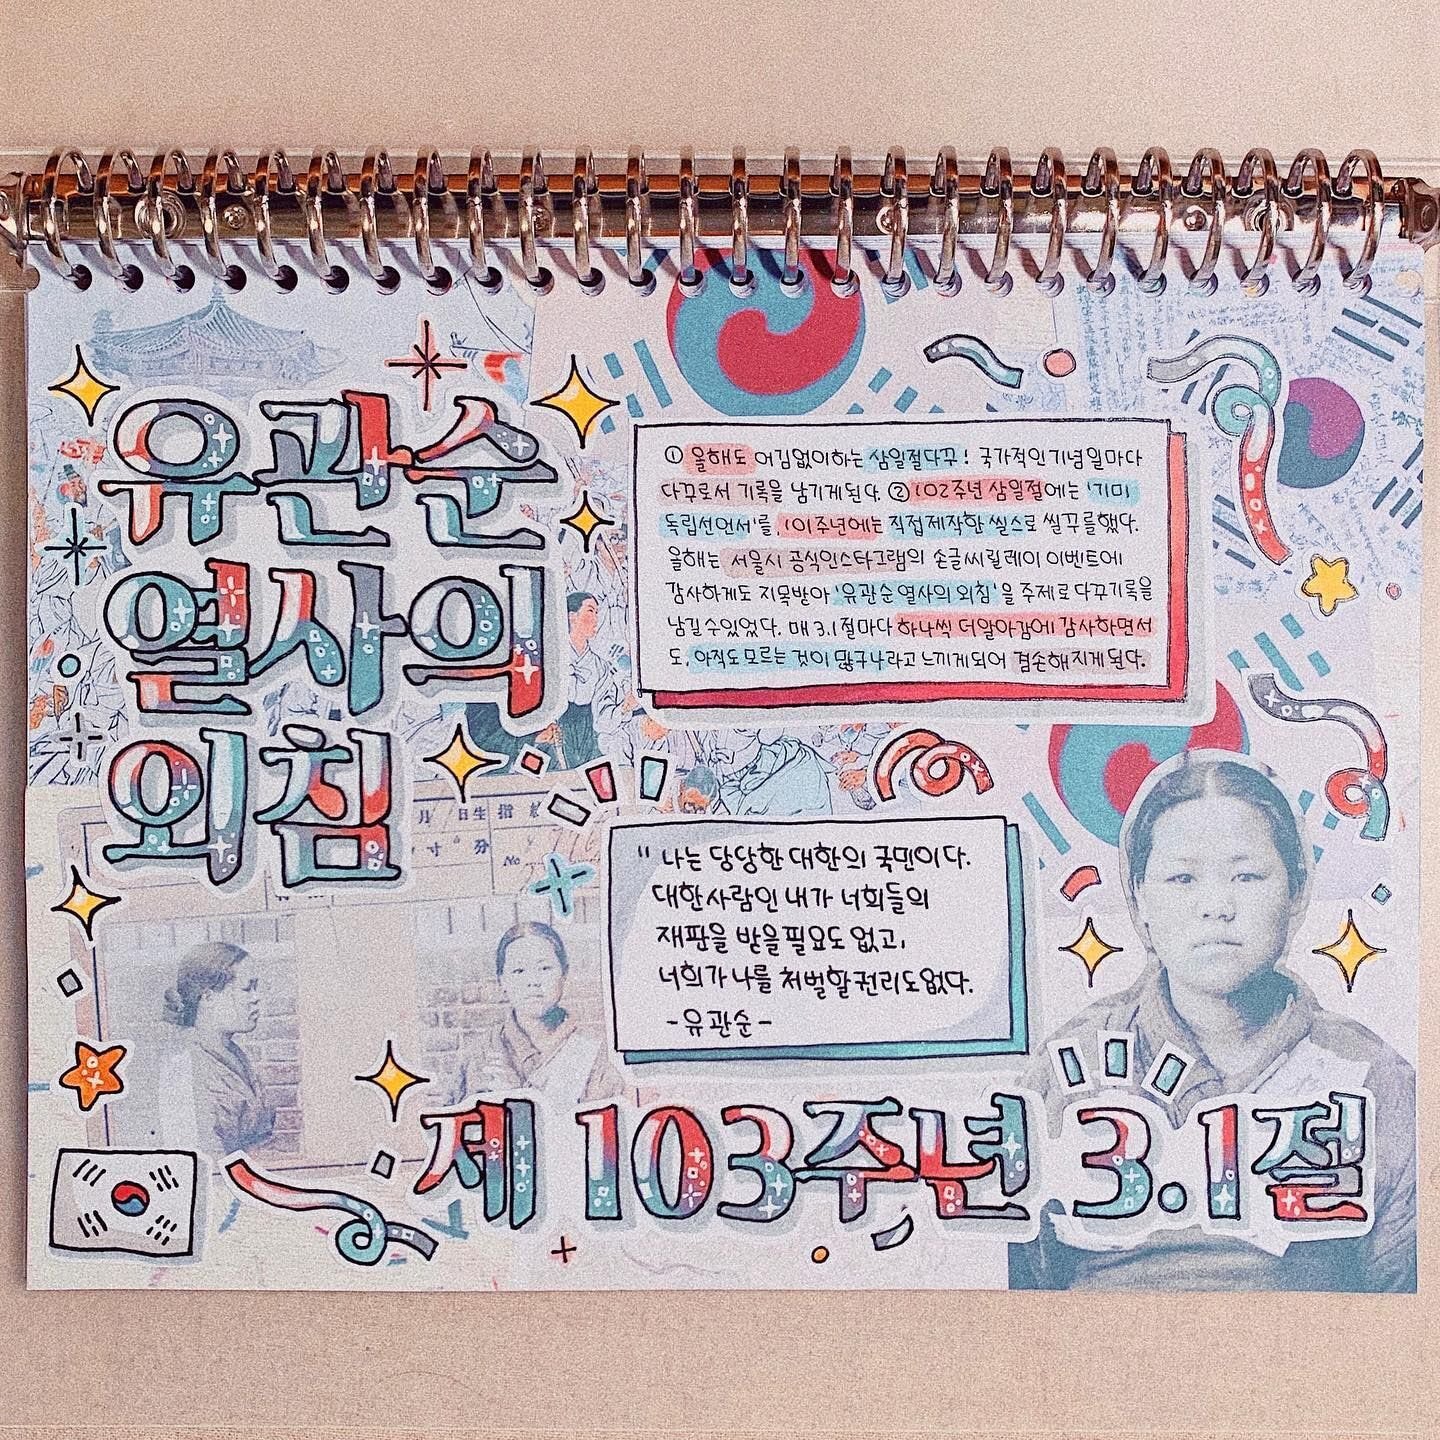 유관순
열사의
외침
① 올해도 어김없이하는 삼일절다꾸! 국가적인기념일마다
다꾸로서 기록을 남기게된다. ②102주년 삼일절에는 '기미
독립선언서'를, 101주년에는 직접제작한 씰스로 씰꾸를했다.
올해는 서울시 공식인스타그램의 손글씨릴레이 이벤트에
감사하게도 지목받아 '유관순 열사의 외침'을 주제로다꾸기록을
남길수있었다. 매 3.1절마다 하나씩 더알아감에 감사하면서
도, 아직도모르는 것이 많구나라고 느끼게되어 겸손해지게된다.
月 日生 指
寸 分 No
" 나는 당당한 대한의 국민이다.
대한사람인 내가 너희들의
재판을 받을필요도 없고,
너희가나를 처벌할권리도없다.
-유관순-
제 103주년 3.1절